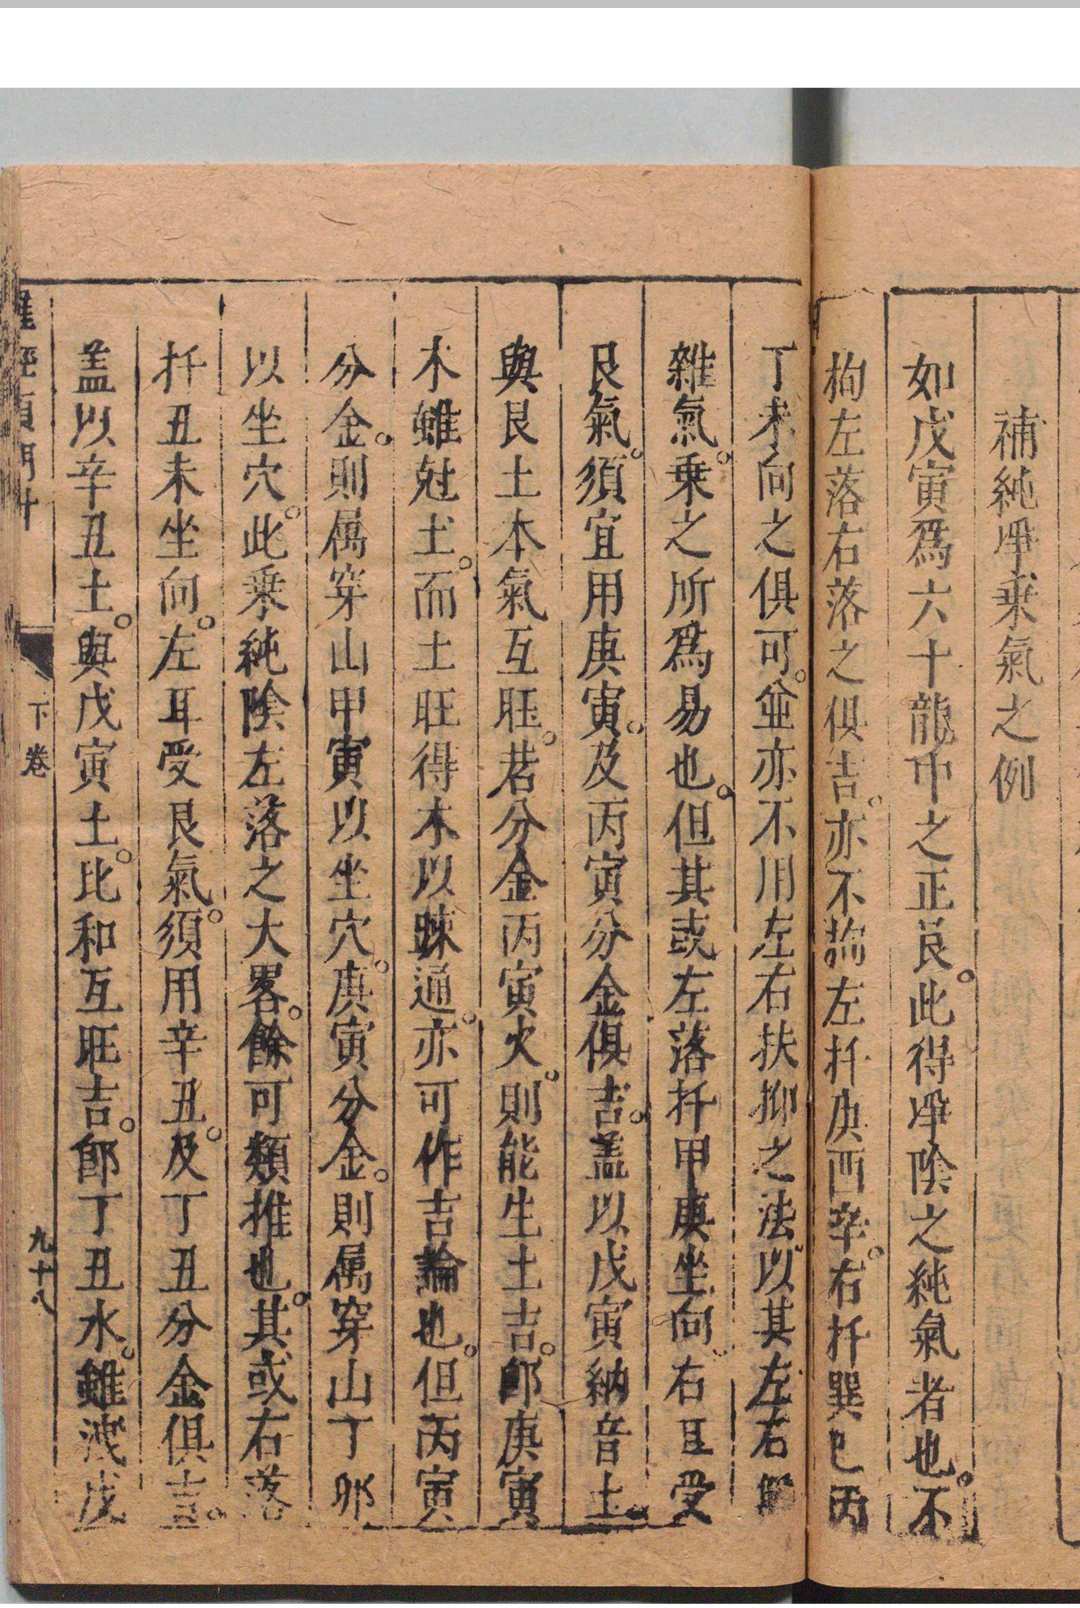 補純淨乗氣之例
如戊寅爲六十龍中之正艮。此得淨陰之純氣者也。不
拘左落右落之俱吉。亦不論左扦庚酉辛。右扦巽巳丙
丁未向之俱可。並亦不用左右扶抑之法。以其左右
雜氣。乗之所爲易也。但其或左落扦甲庚坐向。右耳受
艮氣。須宜用庚寅。及丙寅分金俱吉。盖以戊寅納音土
與艮土本氣互旺。若分金丙寅火。則能生土吉。即庚寅
木雖尅土。而土旺得木以踈通。亦可作吉論也。但丙寅
分金。則属穿山甲寅以坐穴。庚寅分金。則属穿山丁卯
以坐穴。此乗純陰左落之大畧。餘可類推也。其或右落
扦丑未坐向。左耳受艮氣。須用辛丑。及丁丑分金俱吉。
盖以辛丑土。與戊寅土。比和互旺吉。即丁丑水。雖洩戊
羅經頂門針
下卷
九十八